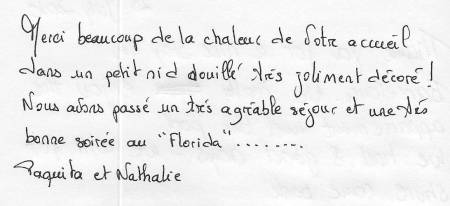 Merci beaucoup de la chaleur de Votre accueil
dans un petit nid douillé très joliment décoré !
Nous avons passé un très agréable séjour et une très
bonne soirée au "Florida".........
Paquita et Nathalie